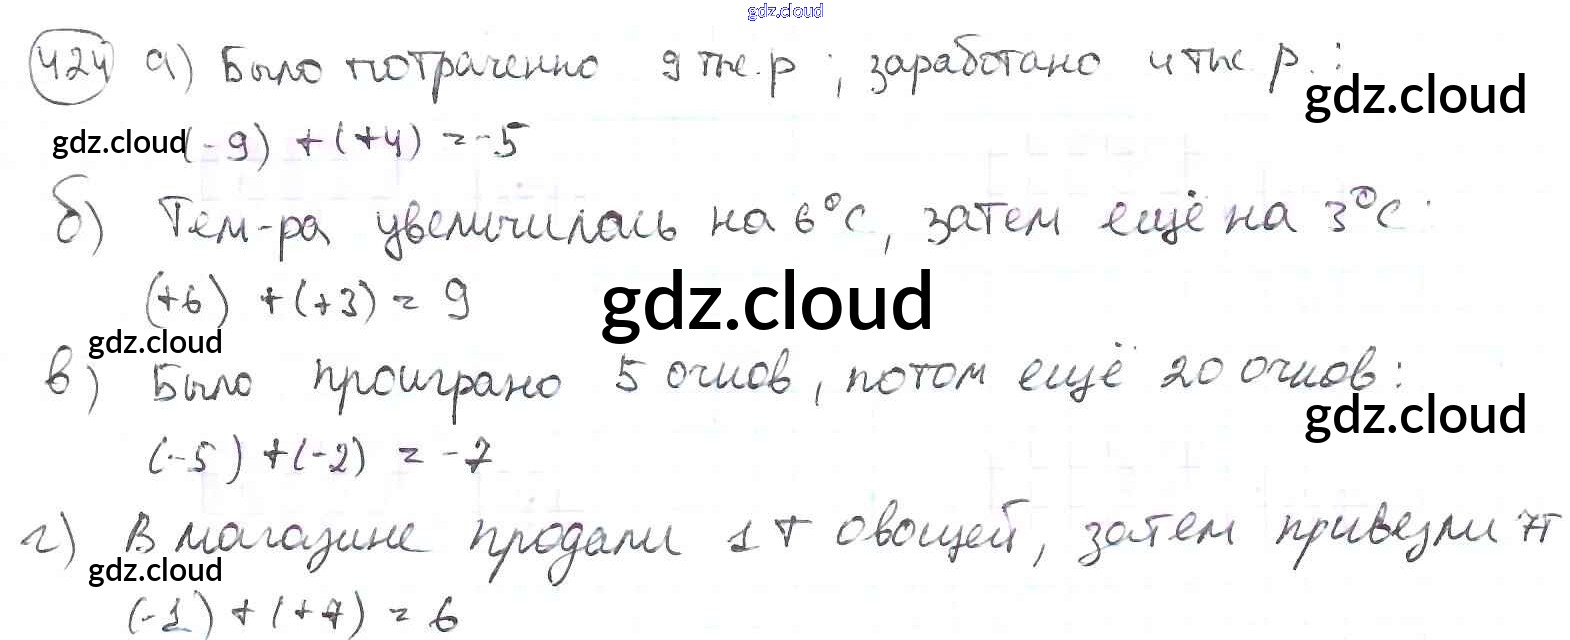 gdz.cloud
424 а) Было потраченно 9 тыс. р ; заработано 4 тыс. р. :
gdz.cloud
gdz.cloud (-9) + (+4) = -5
б) Тем-ра увеличилась на 6°С, затем ещё на 3°С:
(+6) + (+3) = 9
gdz.cloud
gdz.cloud
в) Было проиграно 5 очков, потом ещё 20 очков:
gdz.cloud
(-5) + (-2) = -7
г) В магазине продали 1 т овощей, затем привезли 7т
gdz.cloud
(-1) + (+7) = 6